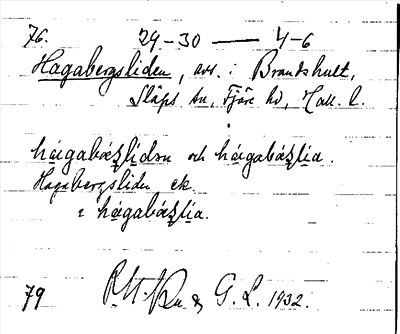 76. 29-30 — 4-6
Hagabergsliden, avs. i Brandshult,
Släps sn, Fjäre hd, Hall. l.
hágabàʒlidən och hágabàʒlia.
Hagabergsliden ek.
i hágabàʒlia.
79 & G. L. 1932.